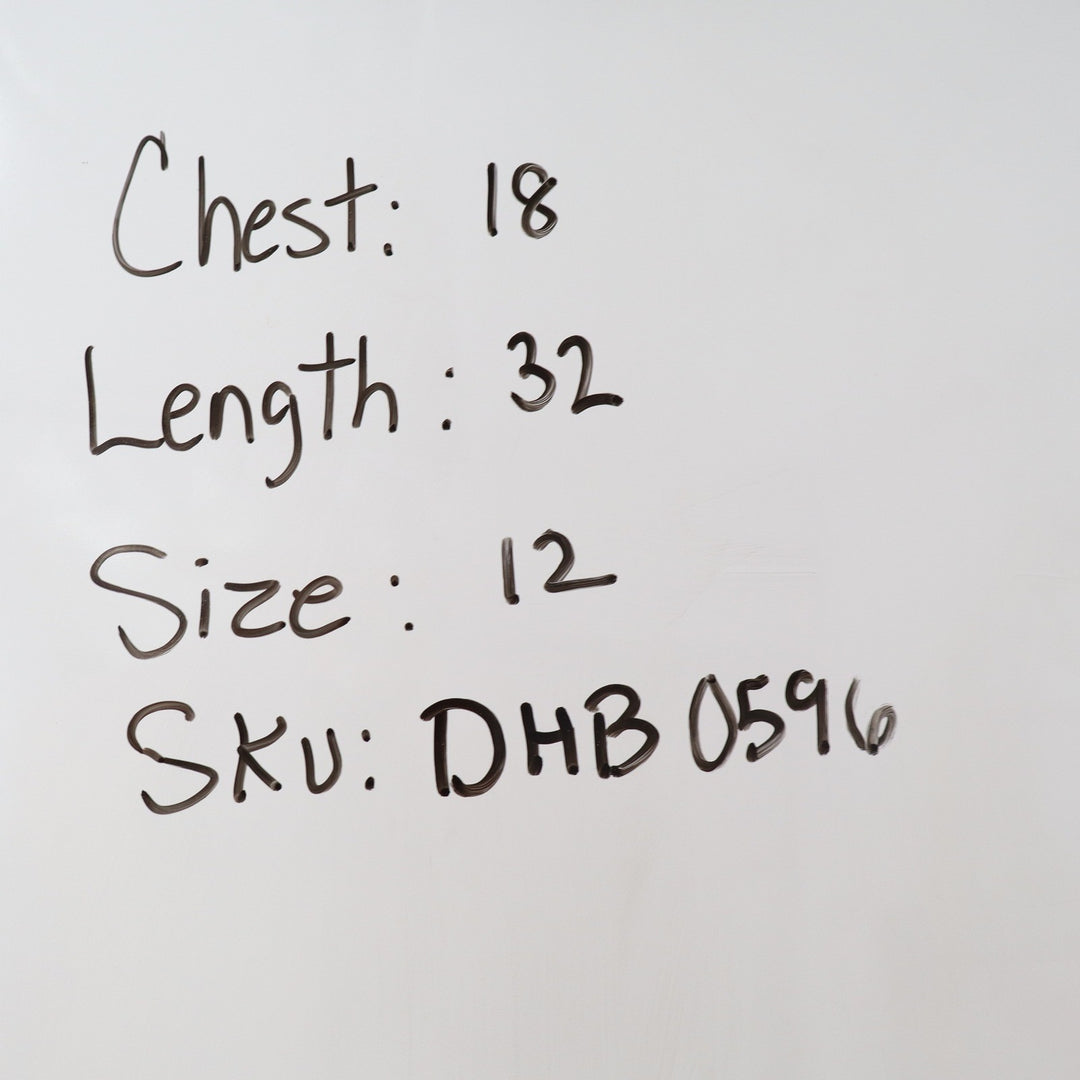 Chest: 18
Length: 32
Size: 12
SKU: DHB 0596